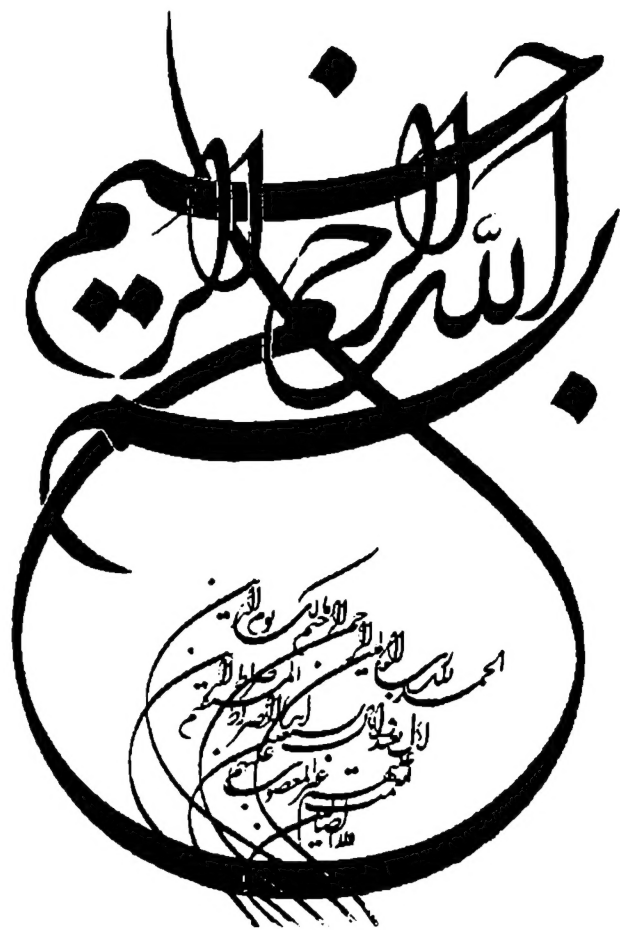 بسم الله الرحمن الرحيم
الحمد لله رب العالمين
الرحمن الرحيم مالك يوم الدين
اياك نعبد و اياك نستعين
اهدنا الصراط المستقيم
صراط الذين انعمت عليهم
غير المغضوب عليهم
ولا الضالين